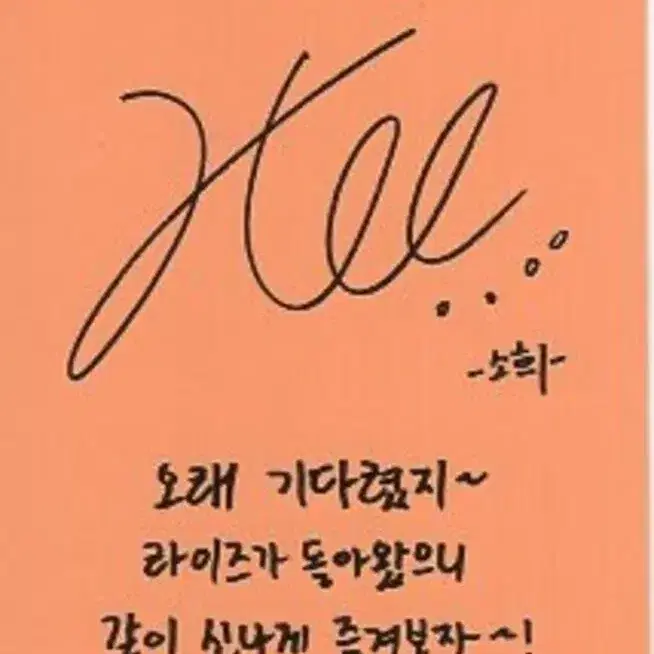 Hee
-소희-
오래 기다렸지~
라이즈가 돌아왔으니
같이 신나게 즐겨보자~!